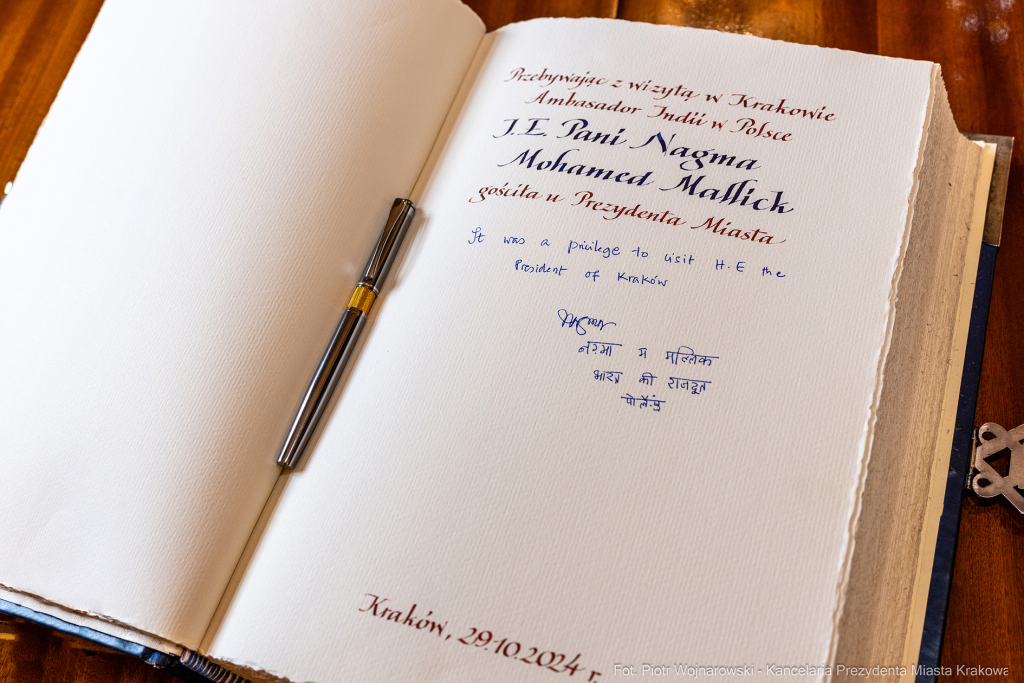 Przebywając z wizytą w Krakowie
Ambasador Indii w Polsce
J.E. Pani Nagma
Mohamed Mallick
gościła u Prezydenta Miasta
It was a privilege to visit H.E the
President of Kraków
नगमा म मल्लिक
भारत की राजदूत
पोलैंड
Kraków, 29.10.2024 r.
Fot. Piotr Wojnarowski - Kancelaria Prezydenta Miasta Krakowa